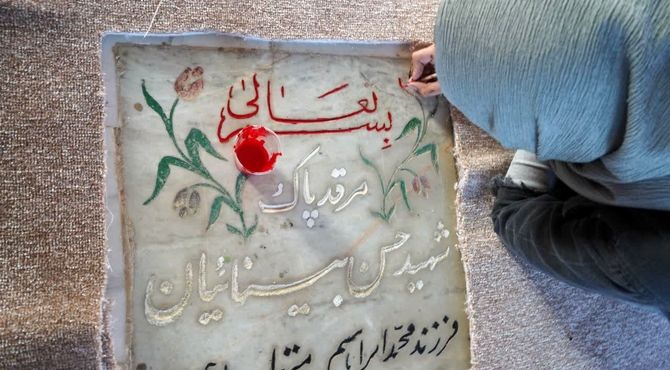 بسم تعالی
مرقد پاک
شهید حسن بینائیان
فرزند محمد ابراهیم